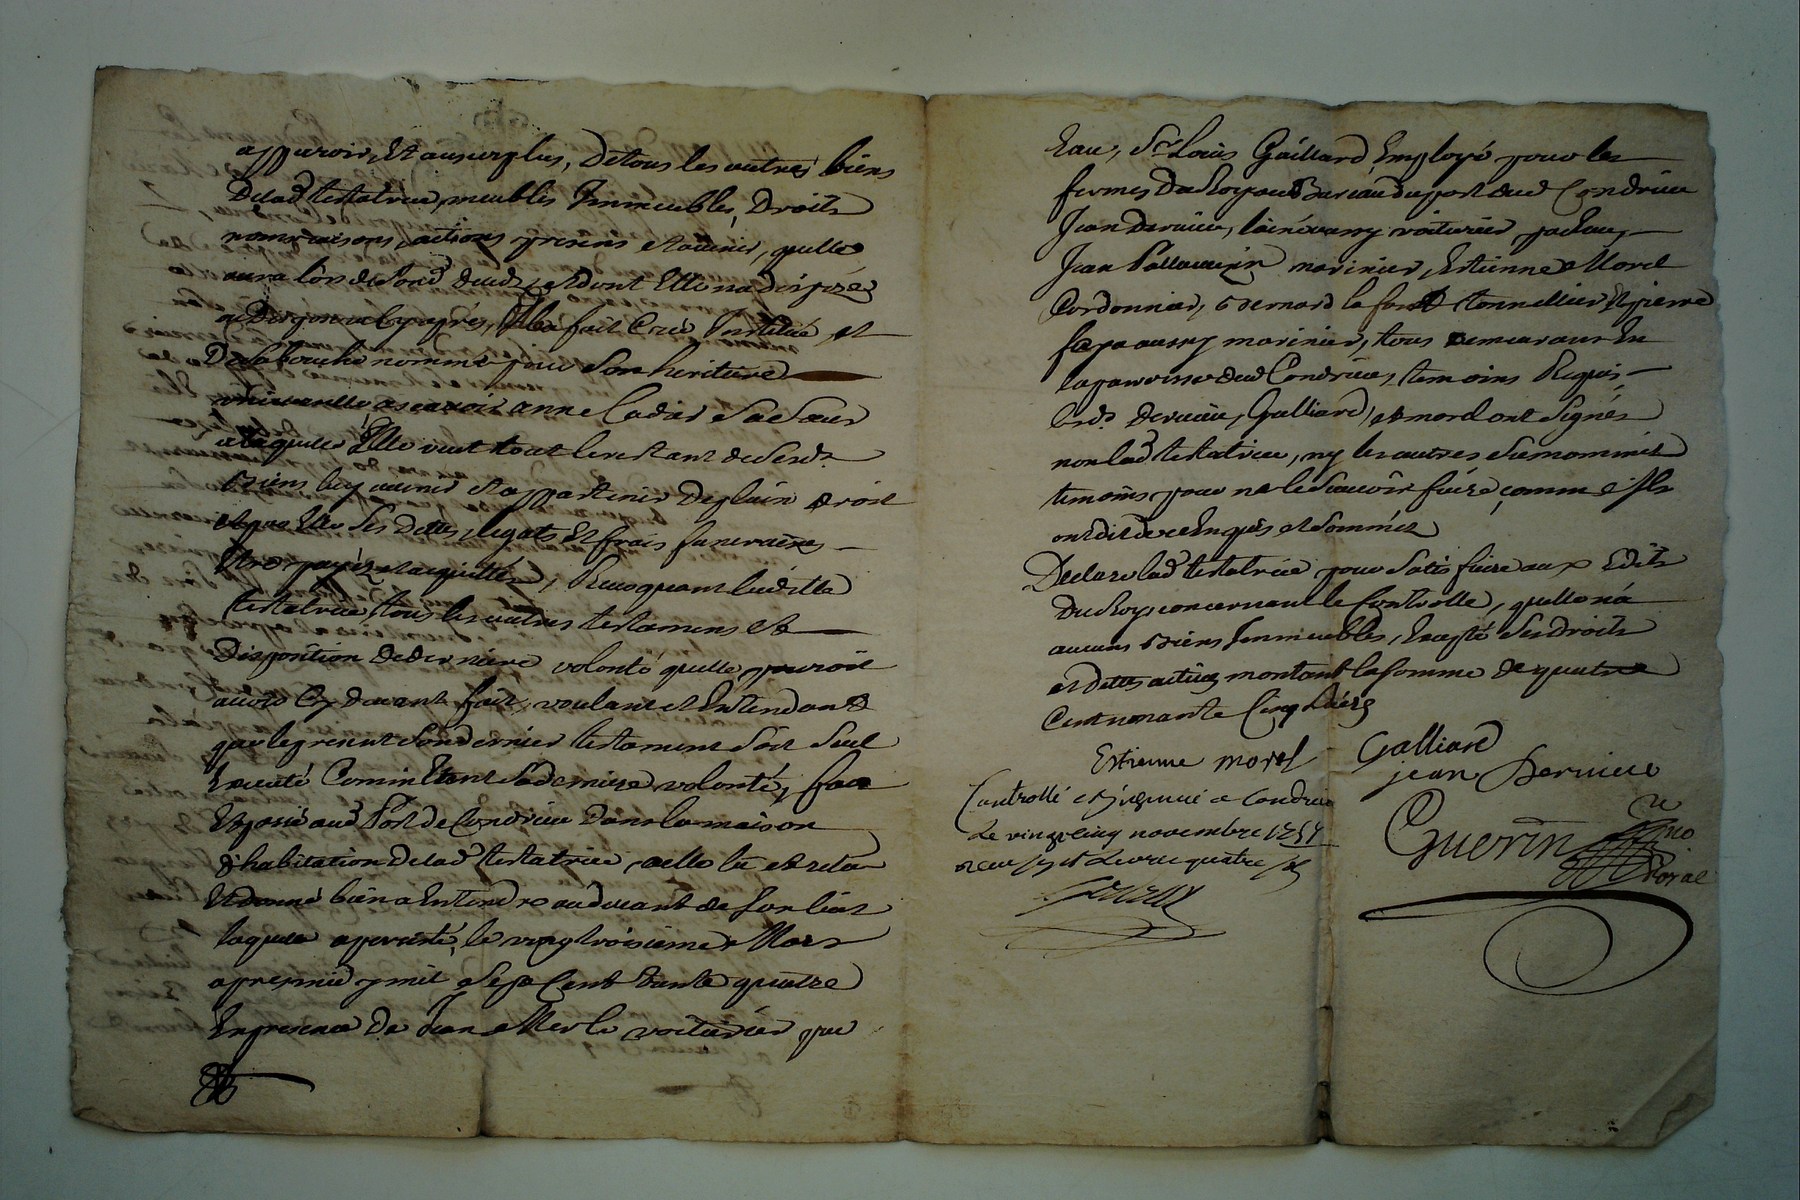 apparoir, Et au surplus, De tous les autres biens
De lad testatrice, meubles Immeubles, Droits
noms raisons, actions presens et avenir, quelle
aura lors de sond deceds, et dont Elle na disposéz
a Disposer cy apres, Elle a fait Creé Institué, et
De sa bouche nommé pour son heritiere
universelle a scavoir anne Cadier Sa Sœur
a laquelle Elle veut tout le restant de sesds
biens luy avenir et appartenir De plain Droit
et par Elle Ses Dettes, legats Et frais funeraires
Etre payéz et acquittéz, Revoquant laditte
testatrice, tous les autres testamens et
Disposition de derniere volonté quelle pouroit
avoir Cy devant fait, voulant et Entendant
que le present Son dernier testament Soit Seul
Executé Contenant Sa derniere volonté, fait
Et passé aud Port de Condrieu Dans la maison
d'habitation De lad testatrice, a elle lû et relû
Et donné bien a Entendre au devant de Son lict
laquelle a persisté, le vingt troisieme Mars
apres midy mil Sept Cent trente quatre
En presence De Jean Merle voiturier par
Eau, Sr Loüis Galliard Employé pour les
fermes Du Roy au Bureau du port dud Condrieu
Jean Dervieu, lainé aussy voiturier par Eau,
Jean marinier, Estienne Morel
Cordonnier, bernard la tonnellier Et pierre
aussy marinier, tous demeurans En
la parroisse dud Condrieu, temoins Requis
lesds Dervieu, Galliard, et morel ont Signés
non lad testatrice, ny les autres Susnommés
temoins pour ne le Scavoir faire, comme Ils
ont dit de ce Enquis et Sommés
Declare lad testatrice pour Satisfaire aux Edits
Du Roy concernant le Controlle, quelle n'a
aucuns biens Immeubles, Excepté Ses Droits
et dettes actives montant la Somme de quatre
Cent nonante Cinq Livres
Estienne morel Galliard
jean Dervieu
Controllé et Insinué a Condrieu
Le vingt cinq novembre
Guerin
Royal